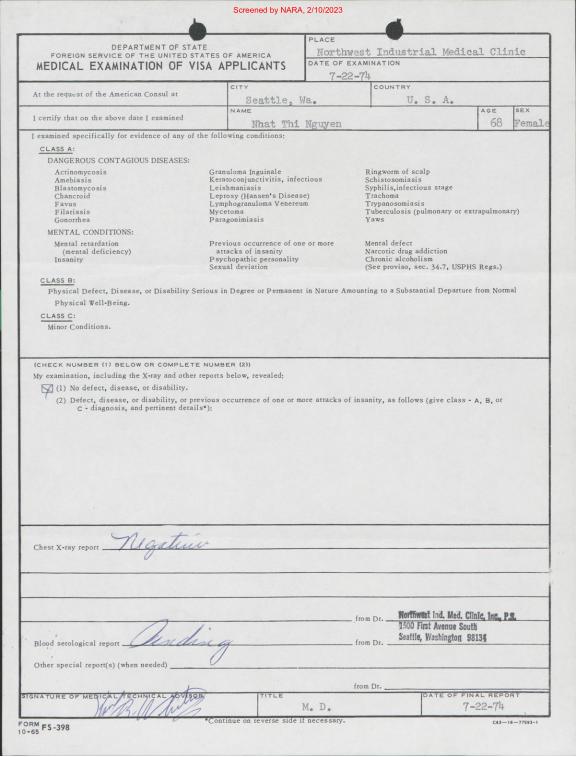 Screened by NARA, 2/10/2023
DEPARTMENT OF STATE
FOREIGN SERVICE OF THE UNITED STATES OF AMERICA
MEDICAL EXAMINATION OF VISA APPLICANTS
PLACE
Northwest Industrial Medical Clinic
DATE OF EXAMINATION
7-22-74
At the request of the American Consul at
CITY
Seattle, Wa.
COUNTRY
U. S. A.
I certify that on the above date I examined
NAME
Nhat Thi Nguyen
AGE
68
SEX
Female
I examined specifically for evidence of any of the following conditions:
CLASS A:
DANGEROUS CONTAGIOUS DISEASES:
Actinomycosis
Amebiasis
Blastomycosis
Chancroid
Favus
Filariasis
Gonorrhea
Granuloma Inguinale
Keratoconjunctivitis, infectious
Leishmaniasis
Leprosy (Hansen's Disease)
Lymphogranuloma Venereum
Mycetoma
Paragonimiasis
Ringworm of scalp
Schistosomiasis
Syphilis,infectious stage
Trachoma
Trypanosomiasis
Tuberculosis (pulmonary or extrapulmonary)
Yaws
MENTAL CONDITIONS:
Mental retardation
(mental deficiency)
Insanity
Previous occurrence of one or more
attacks of insanity
Psychopathic personality
Sexual deviation
Mental defect
Narcotic drug addiction
Chronic alcoholism
(See proviso, sec. 34.7, USPHS Regs.)
CLASS B:
Physical Defect, Disease, or Disability Serious in Degree or Permanent in Nature Amounting to a Substantial Departure from Normal
Physical Well-Being.
CLASS C:
Minor Conditions.
(CHECK NUMBER (1) BELOW OR COMPLETE NUMBER (2))
My examination, including the X-ray and other reports below, revealed:
(1) No defect, disease, or disability.
(2) Defect, disease, or disability, or previous occurrence of one or more attacks of insanity, as follows (give class - A, B, or
C - diagnosis, and pertinent details*):
Chest X-ray report Negative
from Dr. Northwest Ind. Med. Clinic, Inc., P.S.
1500 First Avenue South
Blood serological report Pending from Dr. Seattle, Washington 98134
Other special report(s) (when needed)
from Dr.
SIGNATURE OF MEDICAL TECHNICAL ADVISOR
TITLE
M. D.
DATE OF FINAL REPORT
7-22-74
FORM FS-398
10-65
*Continue on reverse side if necessary.